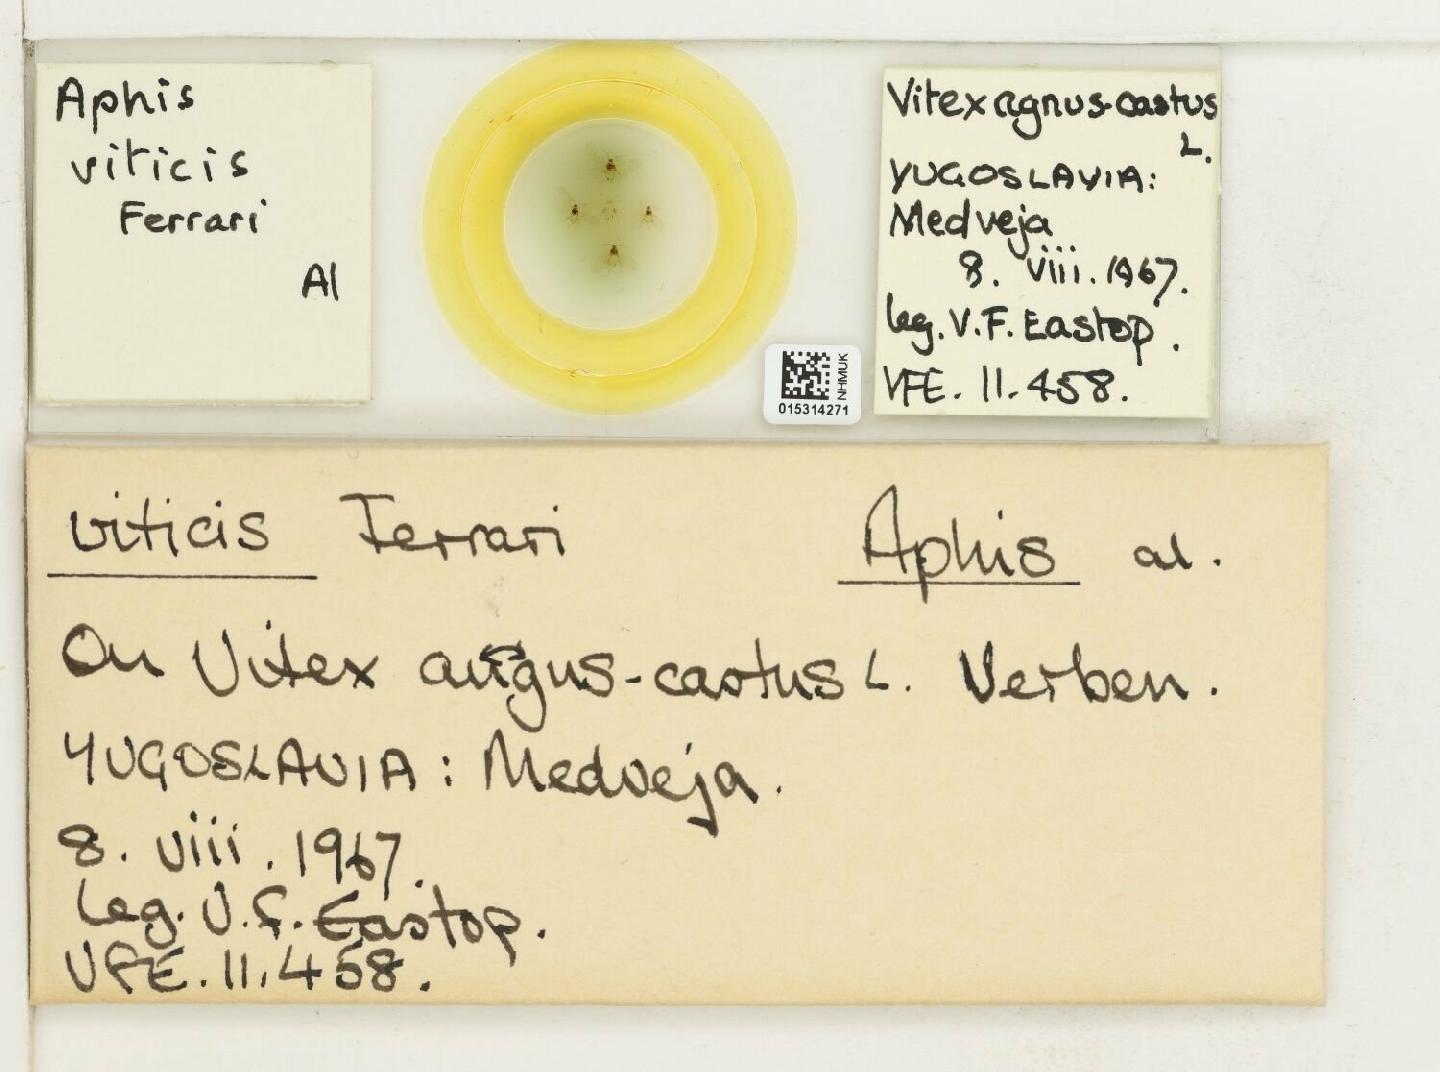 Aphis
viticis
Ferrari
Al
Vitex agnus-castus
L.
YUGOSLAVIA:
Medveja
8. viii. 1967.
leg. V.F. Eastop.
VFE. 11. 458.
NHMUK
015314271
viticis Ferrari Aphis al.
On Vitex angus-castus L. Verben.
YUGOSLAVIA: Medveja.
8. viii. 1967.
leg. V.F. Eastop.
VFE. 11. 458.